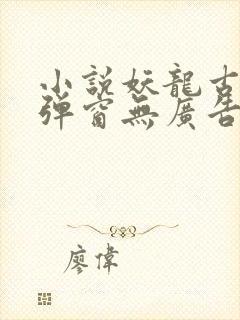 小説妖龍古
彈窗無廣告
廖偉